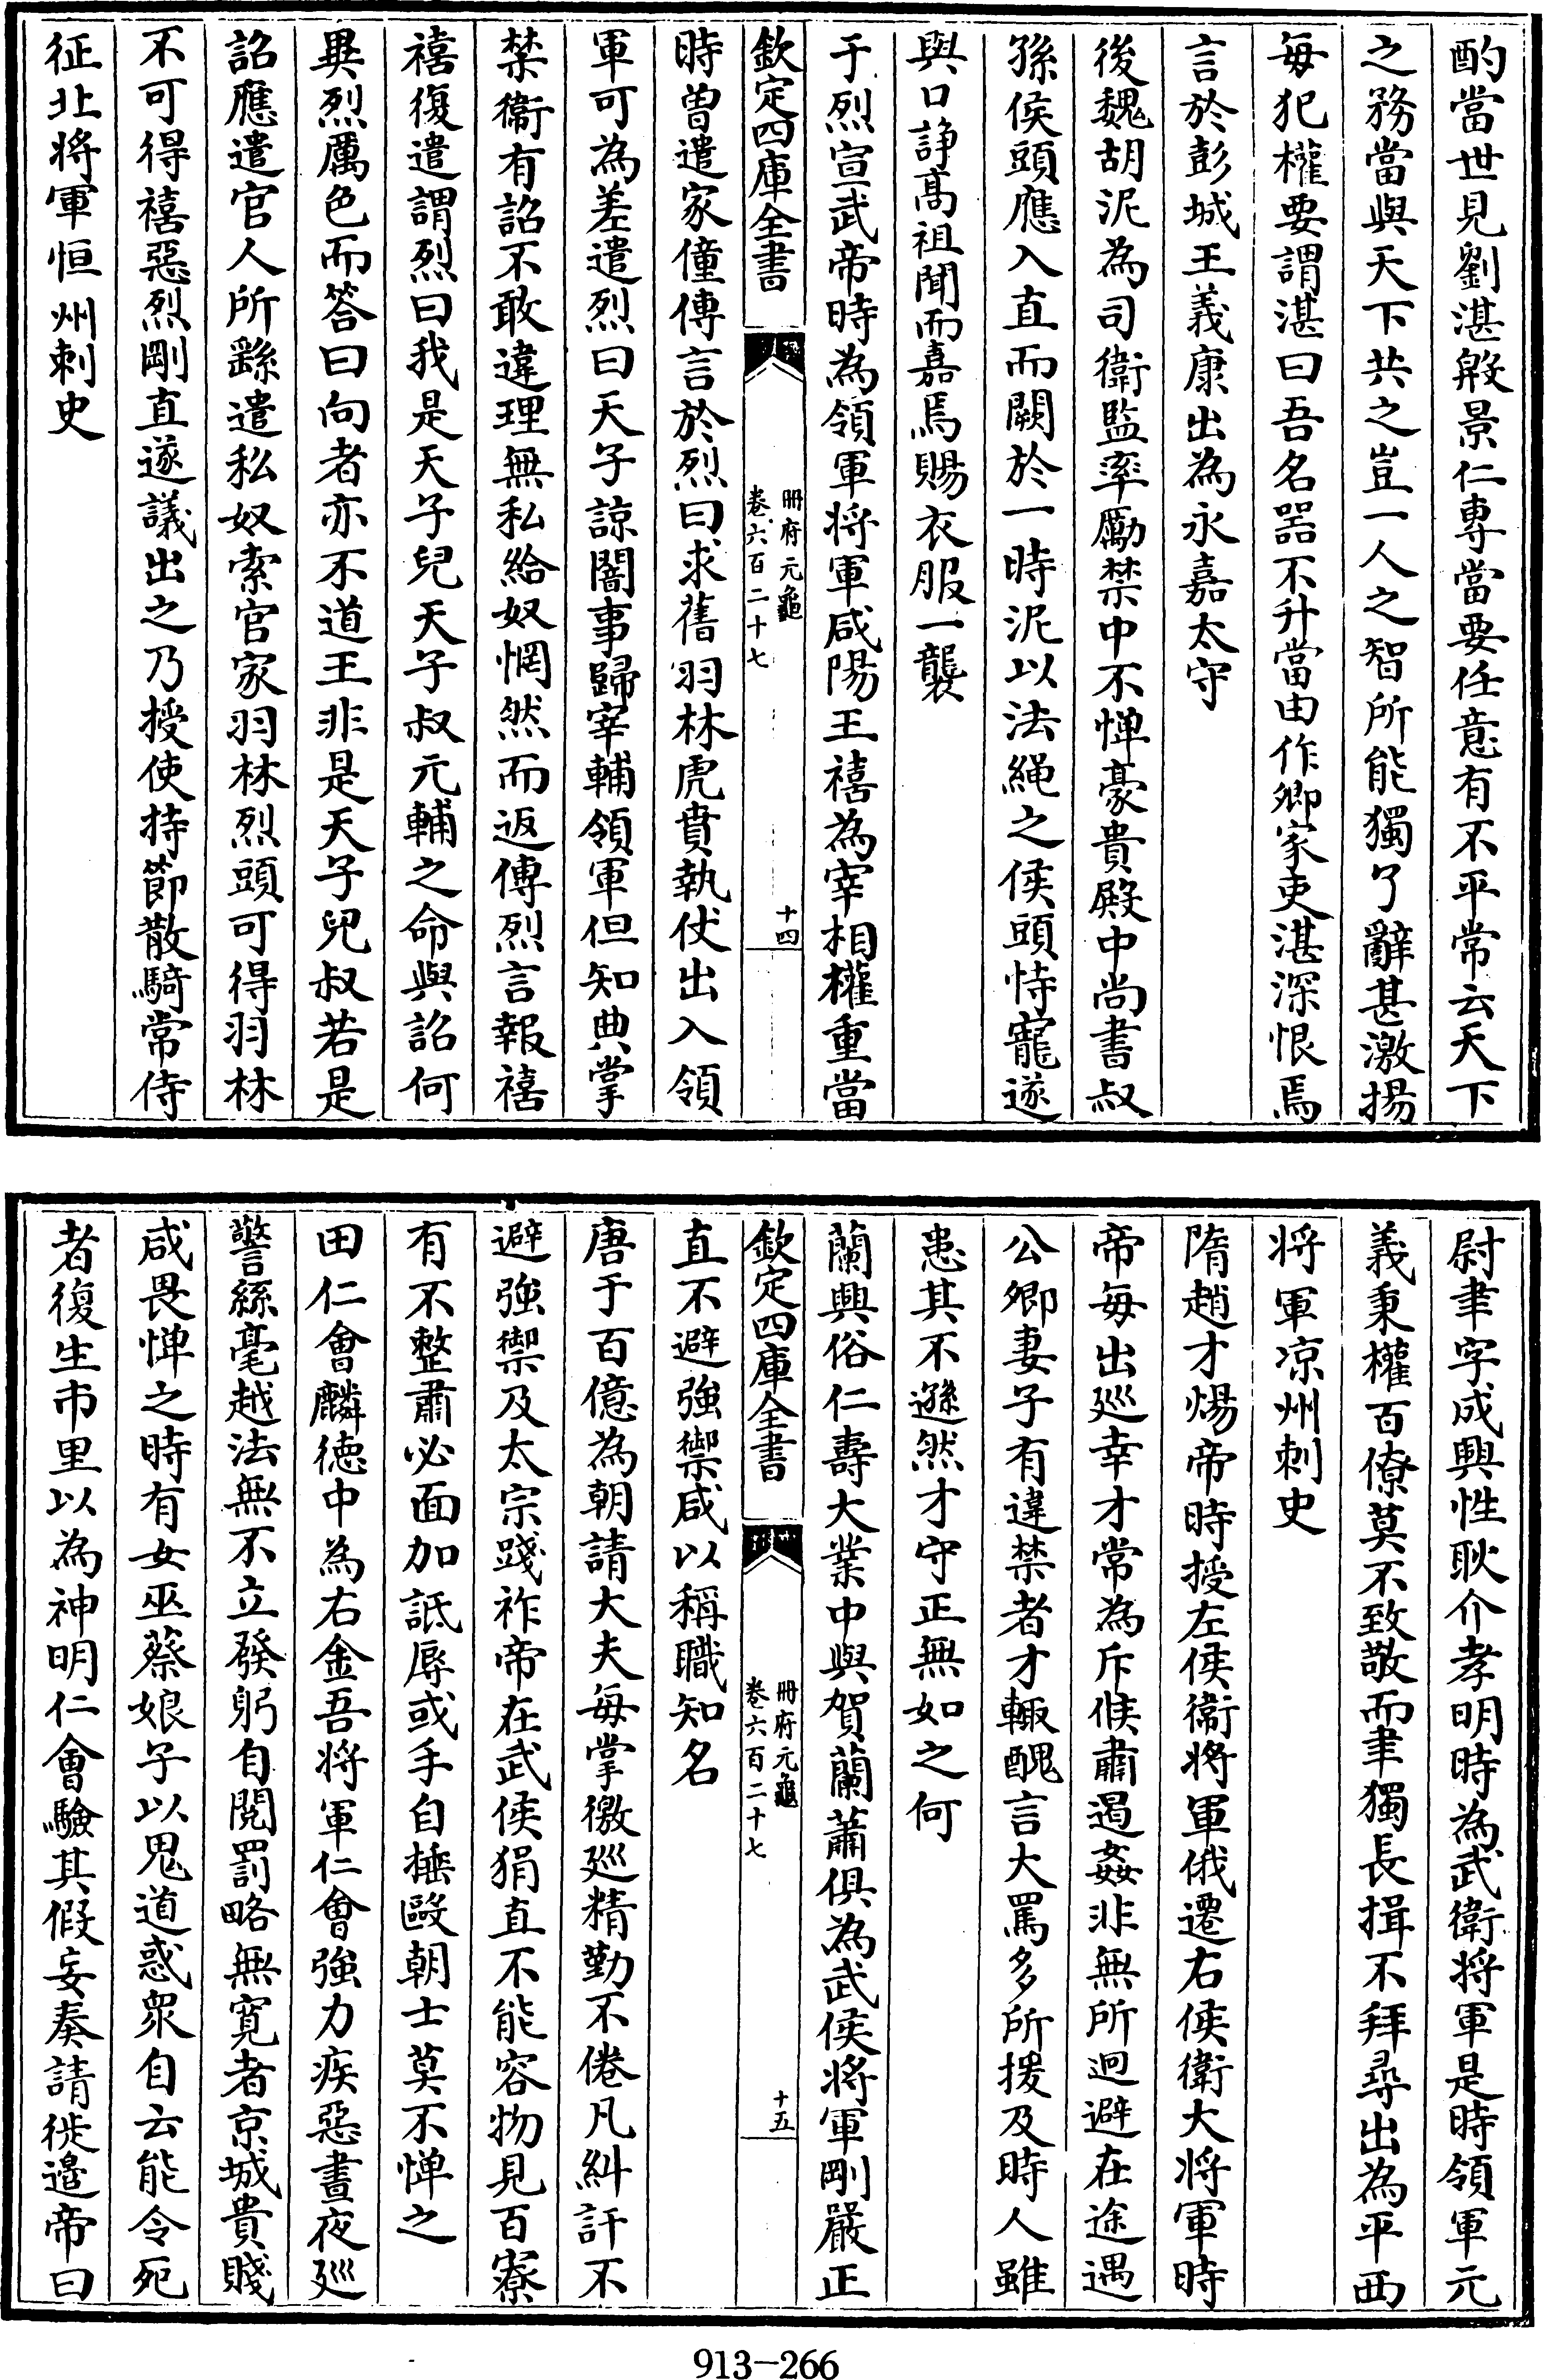 酌當世見劉湛殷景仁專當要任意有不平常云天下
之務當與天下共之豈一人之智所能獨了辭甚激揚
毎犯權要謂湛曰吾名噐不升當由作卿家吏湛深恨焉
言於彭城王義康出為永嘉太守
後魏胡泥為司衛監率勵禁中不憚豪貴殿中尚書叔
孫侯頭應入直而闕於一時泥以法繩之侯頭恃寵遂
與口諍髙祖聞而嘉焉賜衣服一襲
于烈宣武帝時為領軍将軍咸陽王禧為宰相權重當
欽定四庫全書
冊府元龜
卷六百二十七
十四
時曽遣家僮傳言於烈曰求舊羽林虎賁執仗出入領
軍可為差遣烈曰天子諒闇事歸宰輔領軍但知典掌
禁衛有詔不敢違理無私給奴惘然而返傳烈言報禧
禧復遣謂烈曰我是天子兒天子叔元輔之命與詔何
異烈厲色而答曰向者亦不道王非是天子兒叔若是
詔應遣官人所繇遣私奴索官家羽林烈頭可得羽林
不可得禧惡烈剛直遂議出之乃授使持節散騎常侍
征北将軍恒州刺史
尉聿字成興性耿介孝明時為武衛将軍是時領軍元
義秉權百僚莫不致敬而聿獨長揖不拜尋出為平西
将軍凉州刺史
隋趙才煬帝時授左侯衛將軍俄遷右侯衛大将軍時
帝毎出廵幸才常為斥候肅遏姦非無所迴避在途遇
公卿妻子有違禁者才輙醜言大罵多所援及時人雖
患其不遜然才守正無如之何
蘭興俗仁壽大業中與賀蘭蕭俱為武侯将軍剛嚴正
欽定四庫全書
冊府元龜
卷六百二十七
十五
直不避強禦咸以稱職知名
唐于百億為朝請大夫毎掌徼廵精勤不倦凡糾訐不
避強禦及太宗踐祚帝在武侯狷直不能容物見百寮
有不整肅必面加詆辱或手自捶毆朝士莫不憚之
田仁會麟徳中為右金吾将軍仁會強力疾惡晝夜廵
警絲毫越法無不立發躬自閱罰略無寛者京城貴賤
咸畏憚之時有女巫蔡娘子以鬼道惑衆自云能令死
者復生市里以為神明仁會驗其假妄奏請徙邉帝曰
913-266